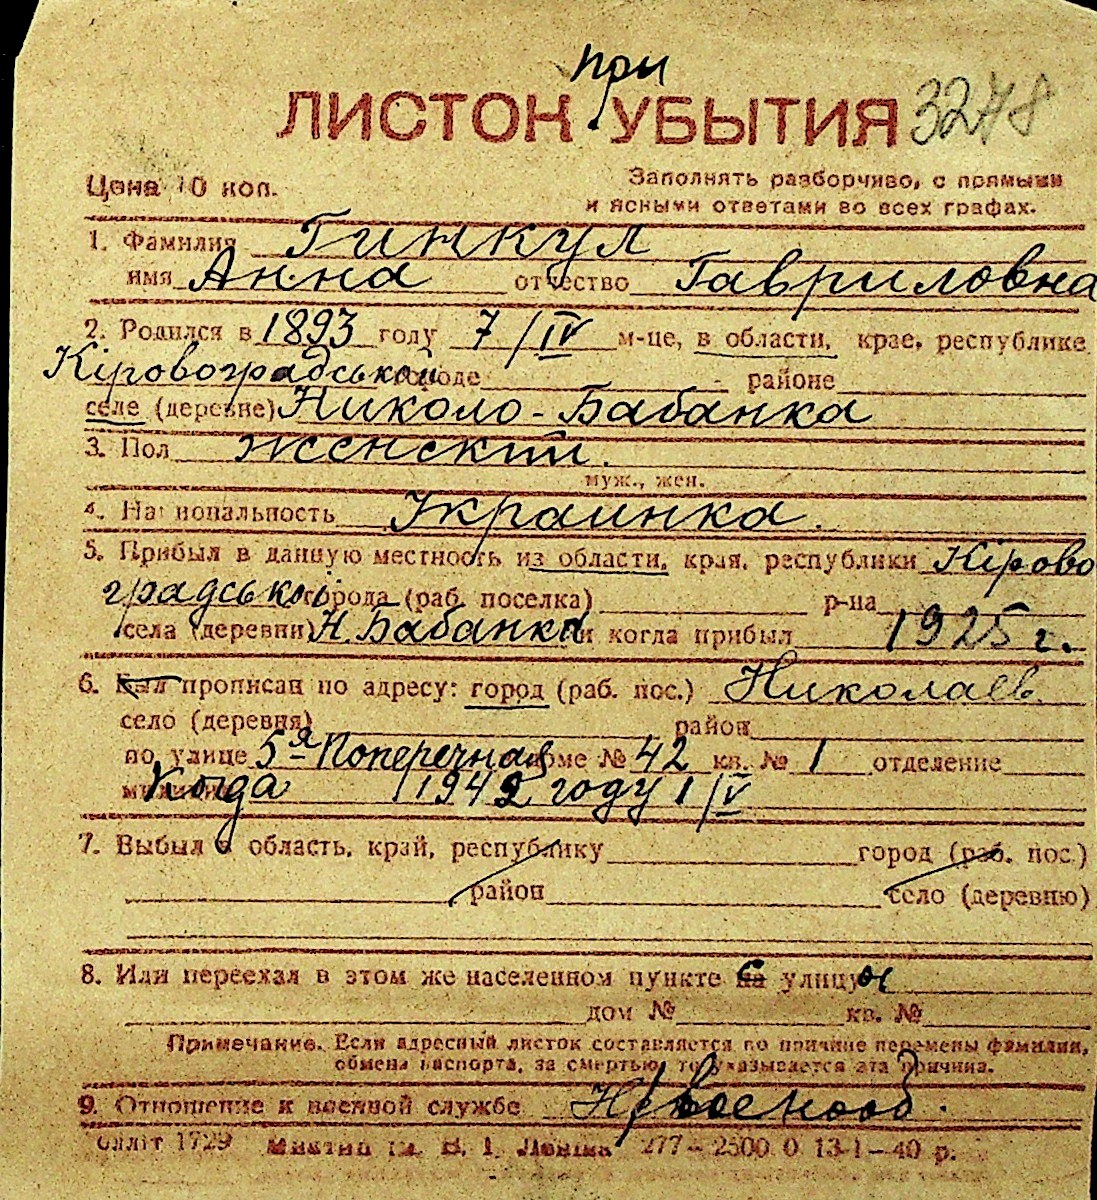 при
ЛИСТОК УБЫТИЯ 3278
Цена 10 коп.
Заполнять разборчиво, с прямыми
и ясными ответами во всех графах.
1. Фамилия Гинкул
имя Анна отчество Гавриловна
2. Родился в 1893 году 7/IV м-це, в области, крае, республике
Кіровоградській городе районе
селе (деревне) Николо-Бабанка
3. Пол женский.
муж., жен.
4. Национальность Украинка.
5. Прибыл в данную местность из области, края, республики Кірово
градської города (раб. поселка) р-на
села (деревни) Н. Бабанка и когда прибыл 1925 г.
6. Был прописан по адресу: город (раб. пос.) Николаев.
село (деревня) район
по улице 5-я Поперечная доме № 42 кв. № 1 отделение
милиции Когда 1942 году 1/V
7. Выбыл в область, край, республику город (раб. пос.)
район село (деревню)
8. Или переехал в этом же населенном пункте на с улицу ы
дом № кв. №
Примечание. Если адресный листок составляется по причине перемены фамилии,
обмена паспорта, за смертью, то указывается эта причина.
9. Отношение к военной службе Н/военооб.
1729 В. І. Леніна 277–2500 0 13-1–40 р.